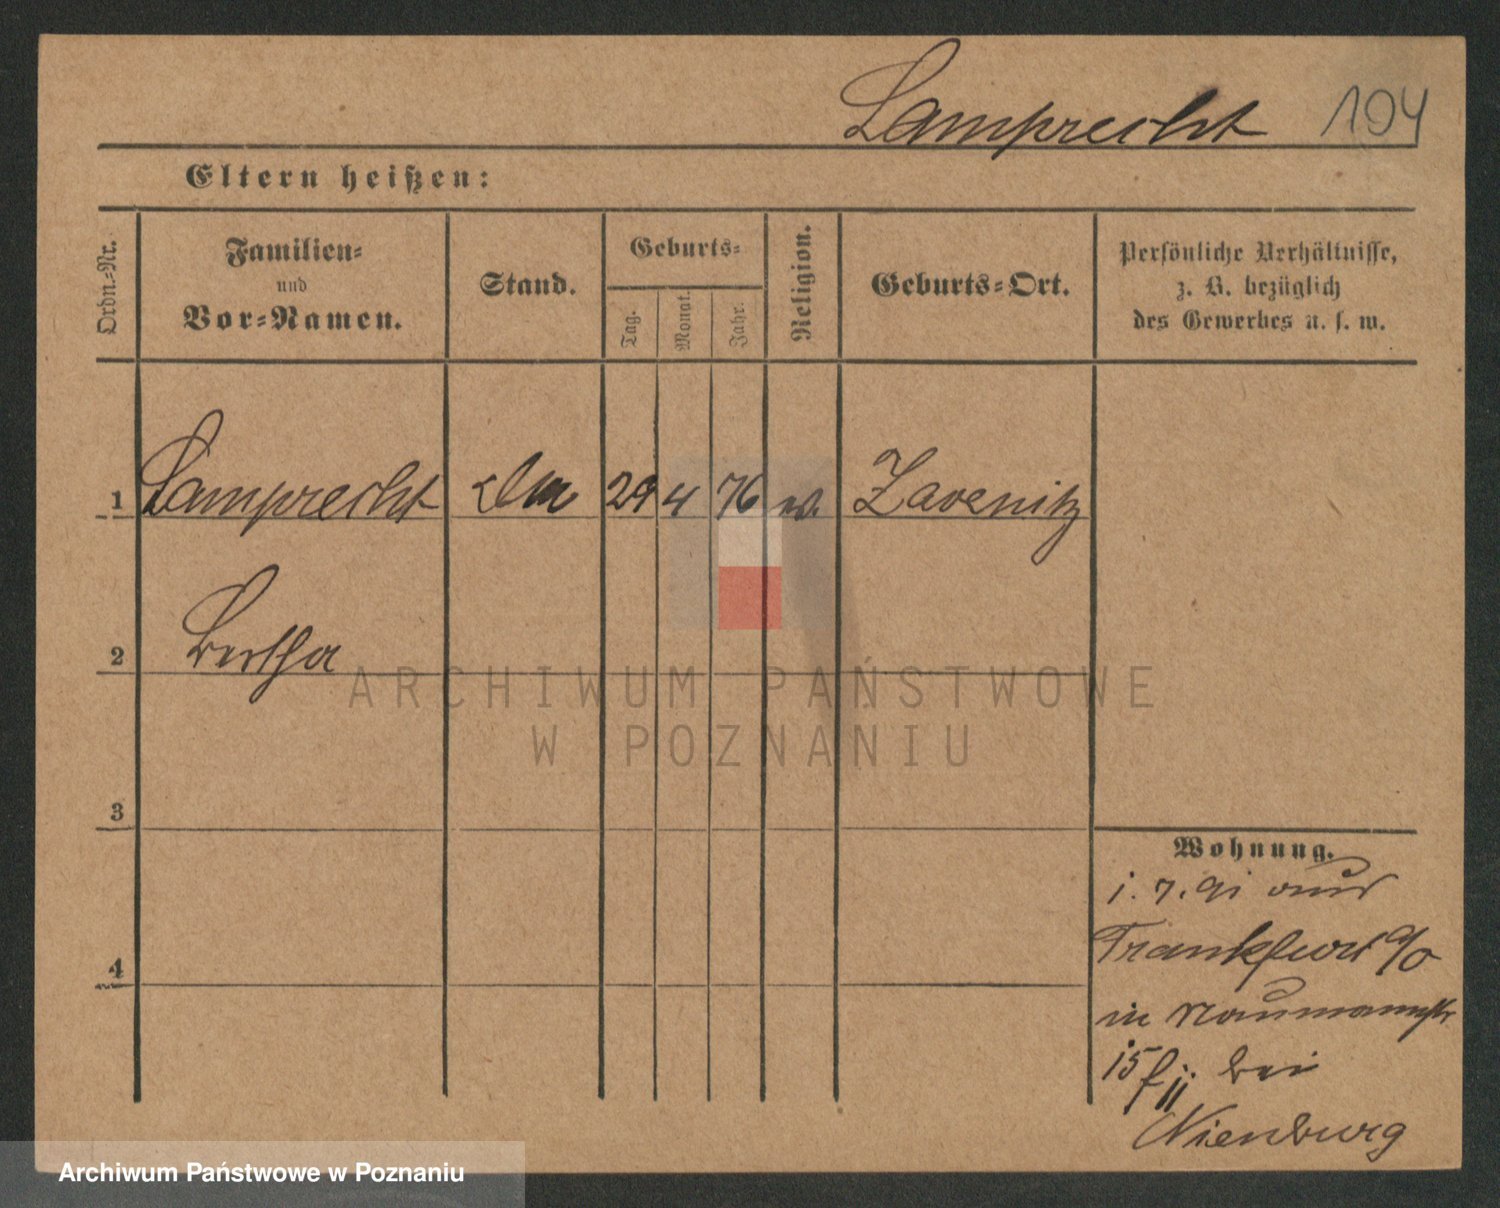 Lamprecht 194
Eltern heißen:
Ordn.-Nr.
Familien-
und
Vor-Namen.
Stand.
Geburts-
Tag.
Monat.
Jahr.
Religion.
Geburts-Ort.
Persönliche Verhältnisse,
z. B. bezüglich
des Gewerbes u. s. w.
1 Lamprecht 29 4 76 ev.
2 Bertha
3
4
Wohnung.
1. 7. 91 aus
Frankfurt a/o
in Naumannstr
15 bei
Nienburg
ARCHIWUM PAŃSTWOWE
W POZNANIU
Archiwum Państwowe w Poznaniu